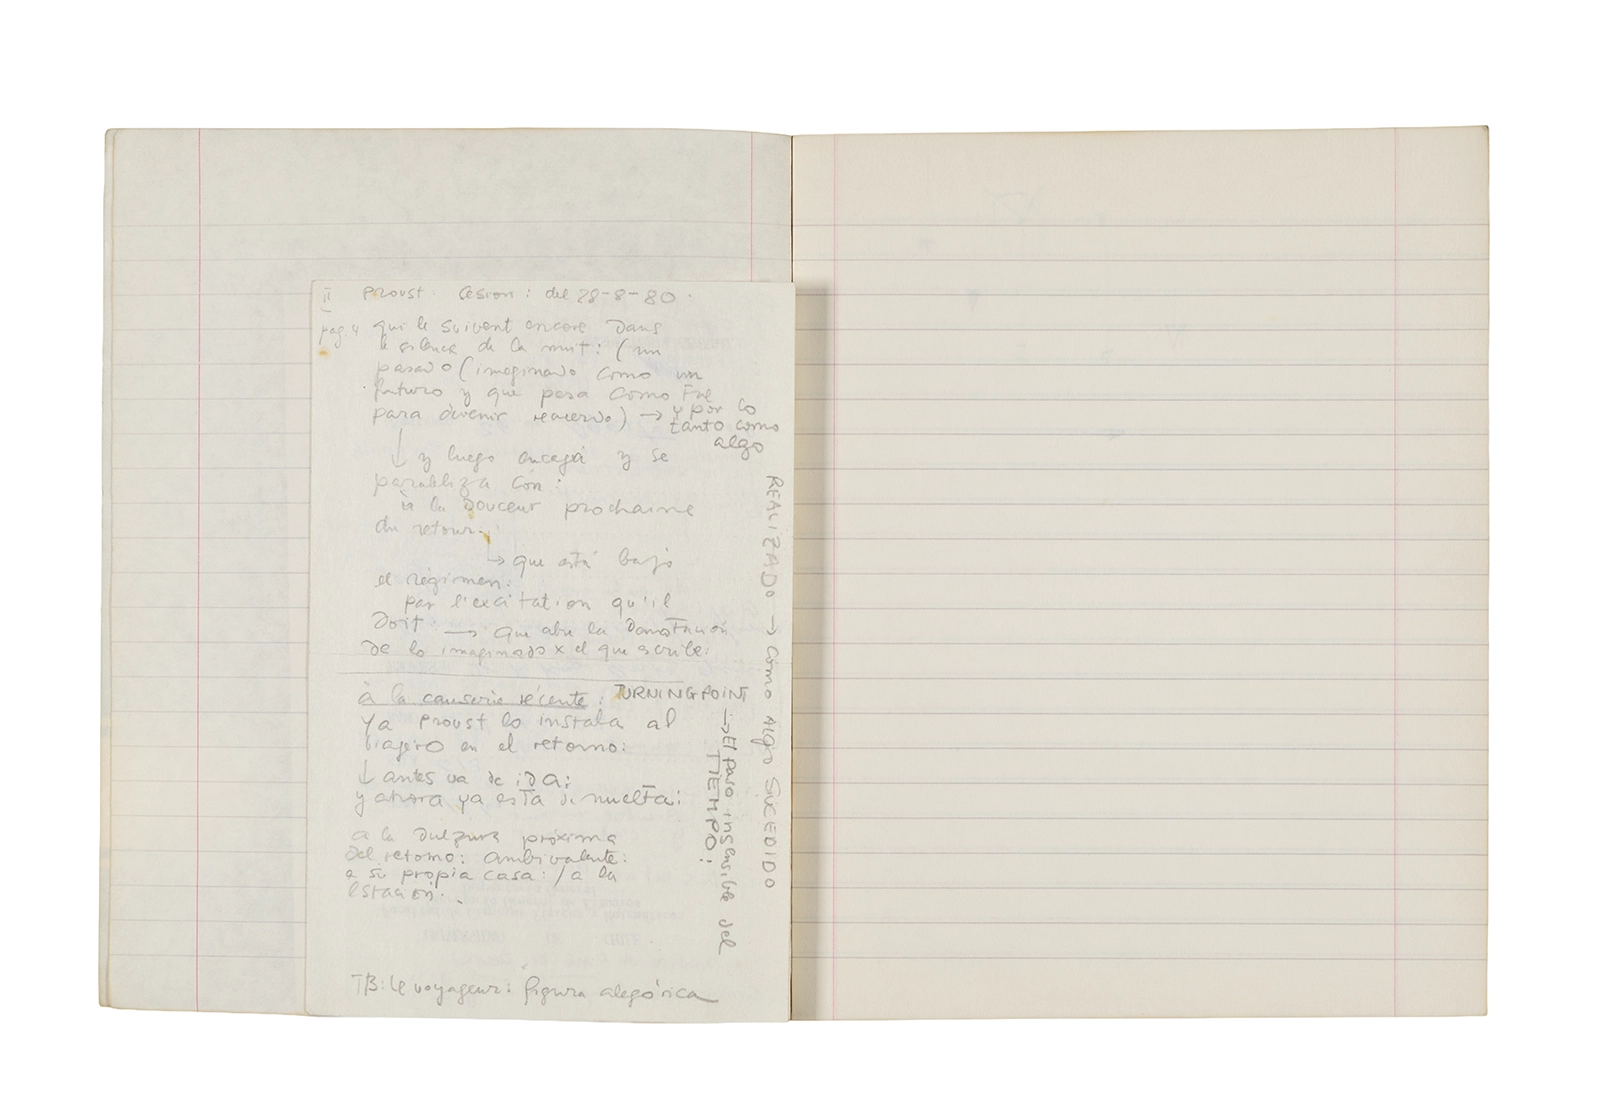 II Proust. Cesion: del 28-8-80.
pag. 4 qui le suivent encore dans
le silence de la nuit: (un
pasado (imaginado como un
futuro y que pasa como Fue
para devenir recuerdo) → y por lo
tanto como
algo
REALIZADO → como ALgo SUCEDIDO
↓ y luego encaja y se
paraleliza con:
à la Douceur prochaine
du retour.
→ que está bajo
el régimen:
par l'excitation qu'il
Doit → que abre la
de lo imaginado x el que escribe:
à la causerie récente: TURNING POINT
→ El paso insensible del
TIEMPO:
ya Proust lo instala al
viajero en el retorno:
↓ antes va de ida;
y ahora ya esta de vuelta:
a la dulzura próxima
del retorno: ambivalente:
a su propia casa: / a la
estación.
TB: le voyageur: figura alegórica